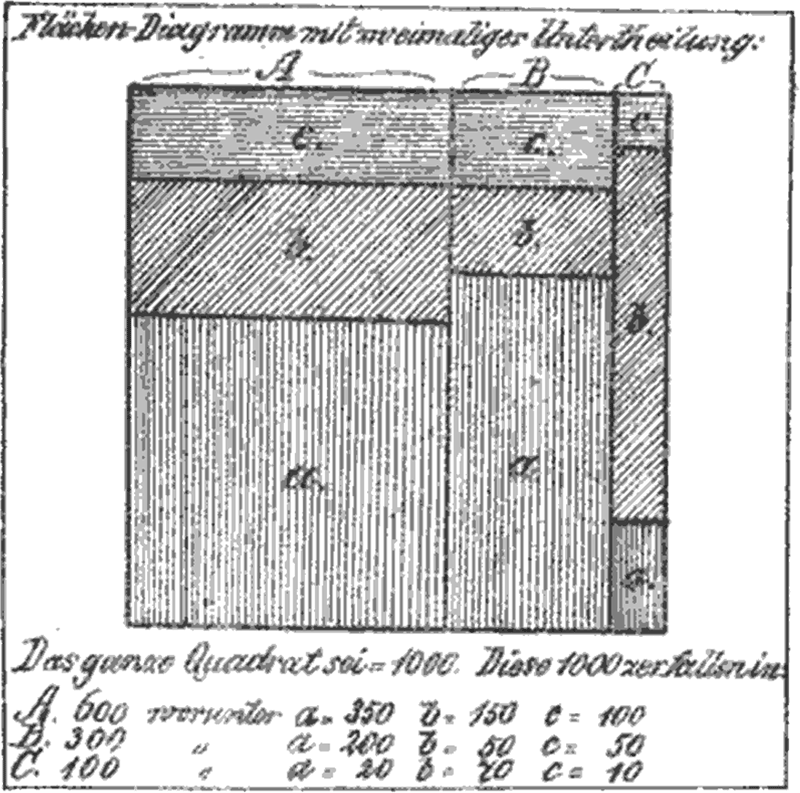 Flächen-Diagramm mit zweimaliger Untertheilung:
A B C
c. c. c.
b. b. b.
a. a. a.
Das ganze Quadrat sei = 1000. Diese 1000 zerfallen in:
A. 600 worunter a = 350 b = 150 c = 100
B. 300 " a = 200 b = 50 c = 50
C. 100 " a = 20 b = 70 c = 10